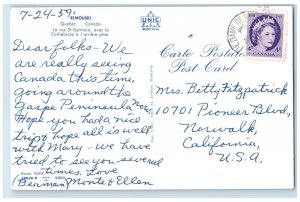 7-24-59.
RIMOUSKI
Quebec, Canada
La rue St-Germain, avec la
Cathédrale à l'arrière plan.
UNIC
MONTREAL
Carte Postale
Post Card
CANADA
Dear folks - We
are really seeing
Canada this time,
going around the
Gaspe Peninsula now
Hope you had a nice
trip & hope all is well
with Mary - we have
tried to see you several
times. Love
(Beaman) Monte & Ellen
Mrs. Betty Fitzpatrick
10701 Pioneer Blvd,
Norwalk,
California,
U.S.A.